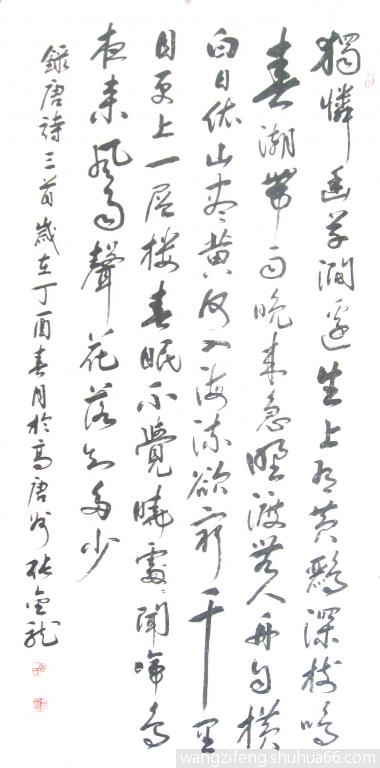 獨憐幽草澗邊生上有黄鸝深樹鳴
春潮帶雨晚来急野渡無人舟自横
白日依山盡黄河入海流欲窮千里
目更上一层楼春眠不覺曉處處聞啼鳥
夜来風雨聲花落知多少
錄唐詩三首歲在丁酉春月於高唐州張金龍
wangzifeng.shuhua66.com